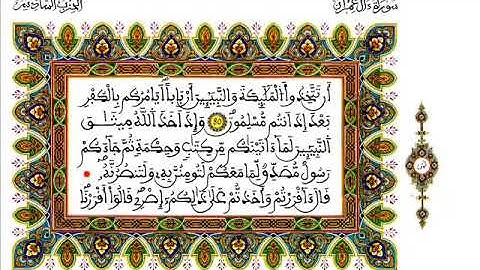 سورة ءال عمران
الحزب السادس
أَن تَتَّخِذُوا الْمَلَٰٓئِكَةَ وَالنَّبِيِٕينَ أَرْبَاباً اَيَامُرُكُم بِالْكُفْرِ
بَعْدَ إِذَ اَنتُم مُّسْلِمُونَ وَإِذَ اَخَذَ اَللَّهُ مِيثَٰقَ
اَلنَّبِيِٕينَ لَمَآ ءَاتَيْنَٰكُم مِّن كِتَٰبٍ وَحِكْمَةٍ ثُمَّ جَآءَكُمْ
رَسُولٌ مُّصَدِّقٌ لِّمَا مَعَكُمْ لَتُومِنُنَّ بِهِۦ وَلَتَنصُرُنَّهُۥ
قَالَ ءَآقْرَرْتُمْ وَأَخَذتُّمْ عَلَىٰ ذَٰلِكُمُۥٓ إِصْرِے قَالُوٓا أَقْرَرْنَا